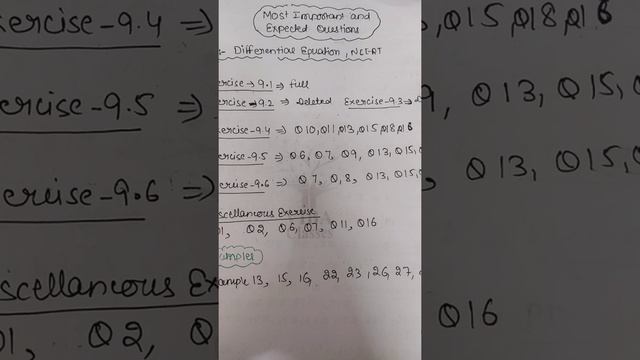 Most Important and
Expected Questions
Differential Equation, NCERT
ercise → 9.1 ⇒ Full
ercise → 9.2 ⇒ Deleted Exercise-9.3 →
ercise-9.4 ⇒ Q10, Q11, Q13, Q15, Q18, Q16
ercise-9.5 ⇒ Q6, Q7, Q9, Q13, Q15, Q
ercise-9.6 ⇒ Q7, Q,8, Q13, Q15, Q
scellaneous Exercise
Q1, Q2, Q6, Q7, Q11, Q16
amples
xample 13, 15, 16, 22, 23, 26, 27,
ercise-9.4 ⇒
ercise-9.5 ⇒
ercise-9.6 ⇒
scellaneous Ex
Q1, Q2,
Q15, Q18, Q16
Q13, Q15,
Q13, Q15,
Q16
Classes